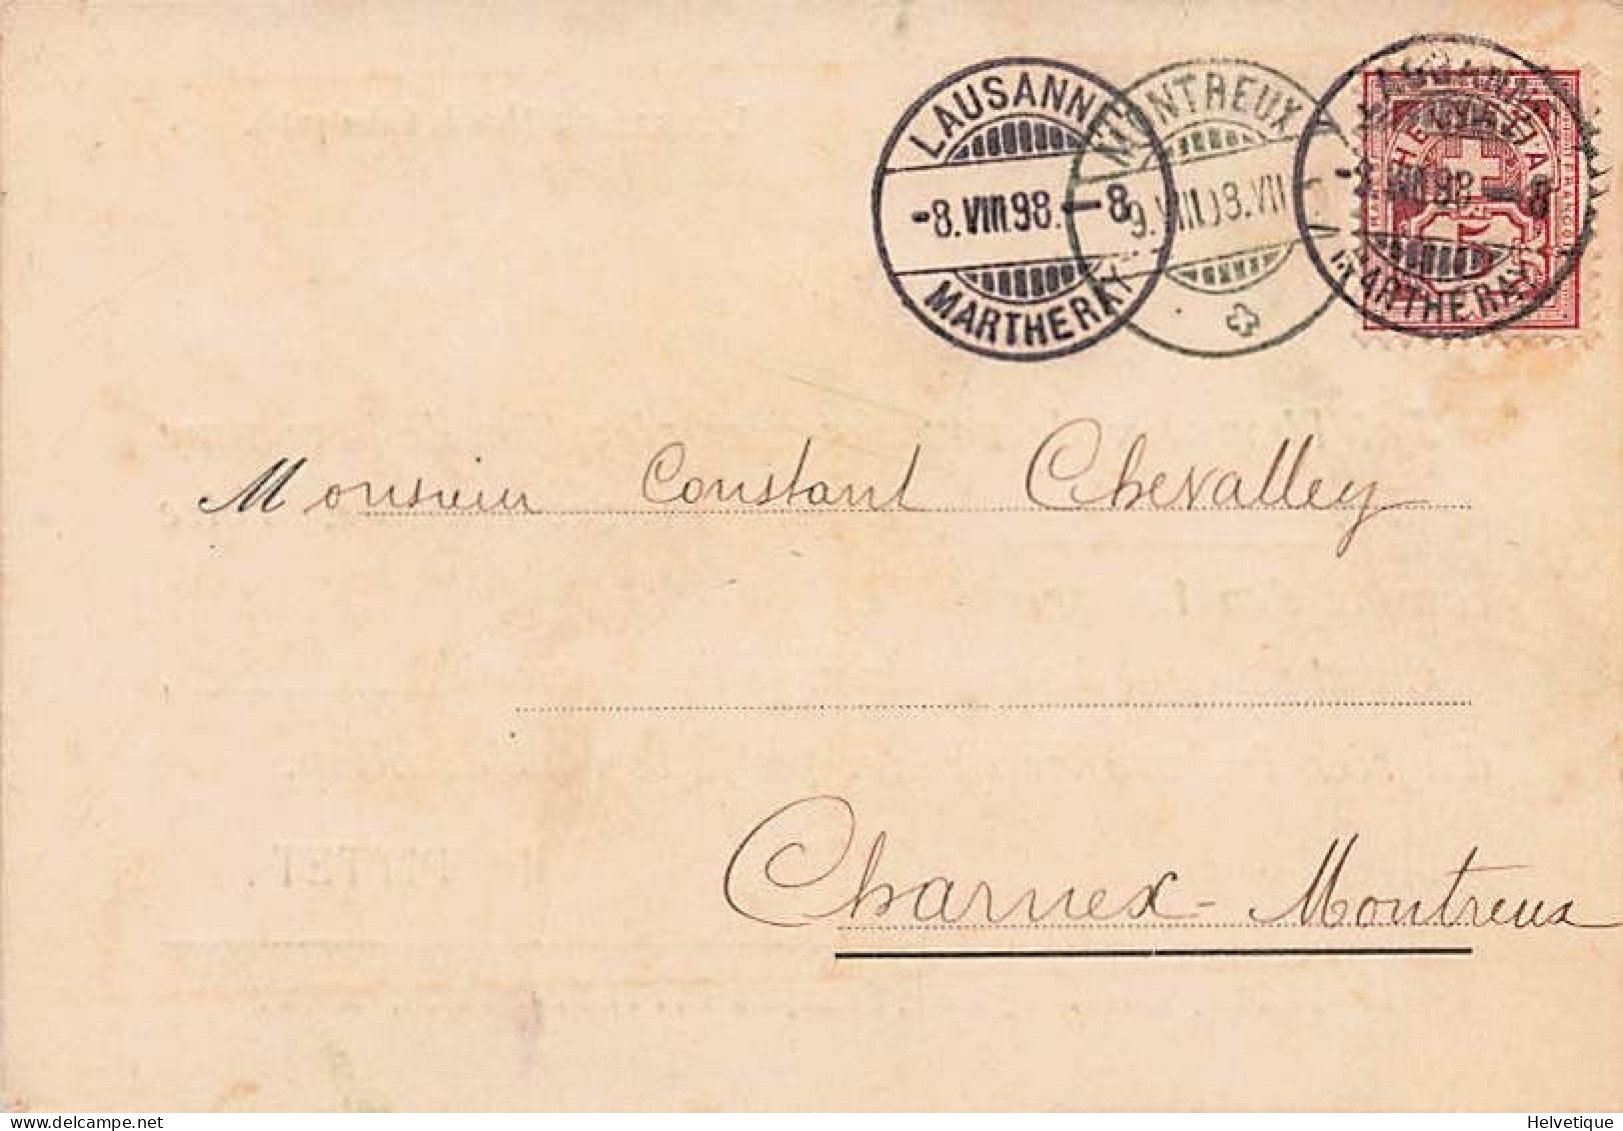 LAUSANNE
-8.VIII.98.-8
MARTHERAY
MONTREUX
9.VIII.98.VII
LAUSANNE
-8.VIII.98-8
MARTHERAY
HELVETIA
FRANCO
5
Monsieur Constant Chevalley
PITTET.
Charnex - Montreux
Helvetique